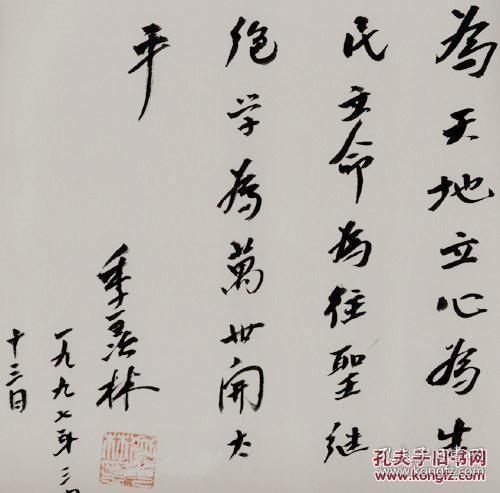 為天地立心為生
民立命為往聖继
絶学為萬世開太
平
季羡林
一九九七年三月
十三日
孔夫子旧书网
www.kongfz.com